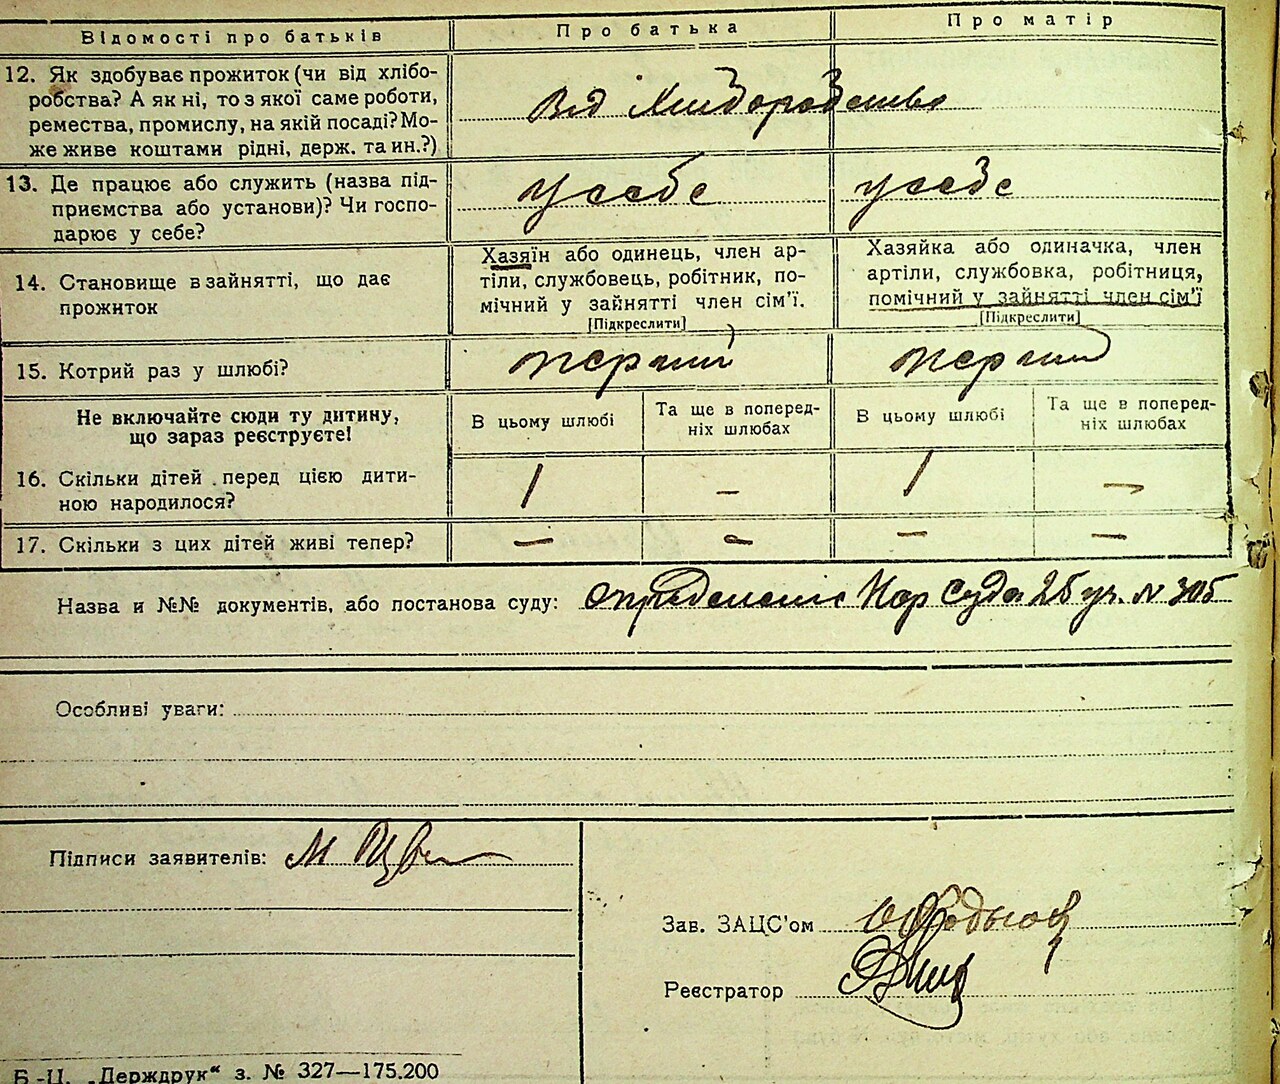 Відомості про батьків
Про батька
Про матір
12. Як здобуває прожиток (чи від хлібо-
робства? А як ні, то з якої саме роботи,
ремества, промислу, на якій посаді? Мо-
же живе коштами рідні, держ. та ин.?)
Від Хлиборобство
13. Де працює або служить (назва під-
приємства або установи)? Чи госпо-
дарює у себе?
у себе
у себе
14. Становище в зайнятті, що дає
прожиток
Хазяїн або одинець, член ар-
тіли, службовець, робітник, по-
мічний у зайнятті член сім'ї.
[Підкреслити]
Хазяйка або одиначка, член
артіли, службовка, робітниця,
помічний у зайнятті член сім'ї
[Підкреслити]
15. Котрий раз у шлюбі?
перший
перший
Не включайте сюди ту дитину,
що зараз реєструєте!
В цьому шлюбі
Та ще в поперед-
ніх шлюбах
В цьому шлюбі
Та ще в поперед-
ніх шлюбах
16. Скільки дітей перед цією дити-
ною народилося?
1
—
1
—
17. Скільки з цих дітей живі тепер?
—
—
—
—
Назва и №№ документів, або постанова суду: определение Нар Суда 25 уч. N 305
Особливі уваги:
Підписи заявителів: М
Зав. ЗАЦС'ом
Реєстратор
Б.-Ц. „Держдрук“ з. № 327—175.200